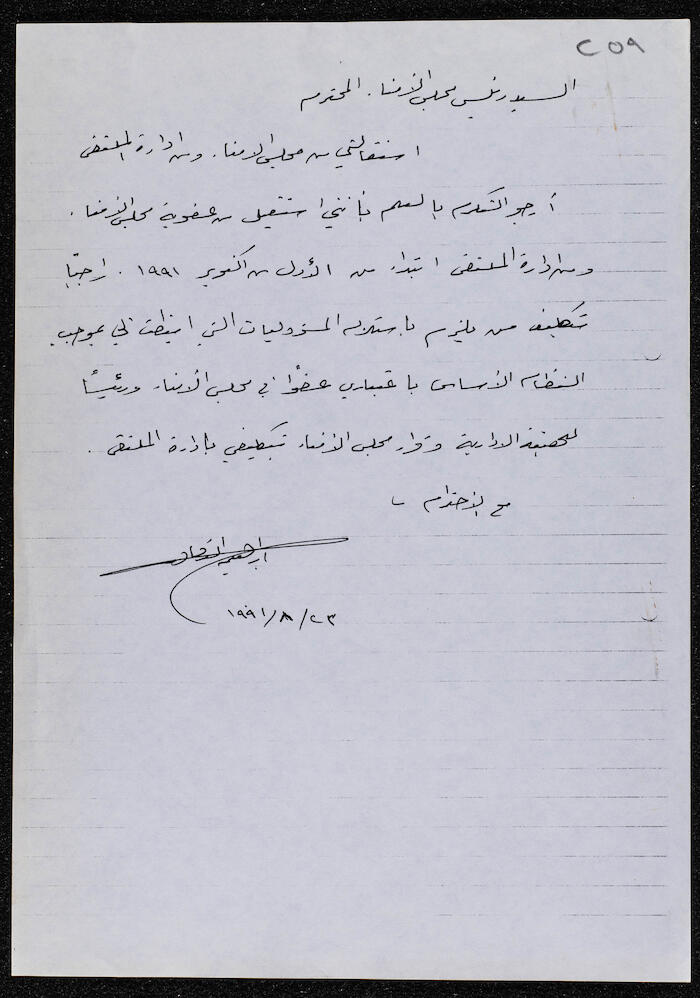 ٢٥٩
السيد رئيس مجلس الأمناء المحترم
استقالتي من مجلس الامناء ومن ادارة الملتقى
أرجو التكرم بالعلم بأنني استقيل من عضوية مجلس الأمناء
ومن ادارة الملتقى ابتداء من الأول من اكتوبر ١٩٩١ . راجيًا
تكليف من يلزم باستلام المسؤوليات التي انيطت بي بموجب
النظام الأساسي باعتباري عضوًا في مجلس الأمناء ورئيسًا
للجنة الادارية وقرار مجلس الأمناء بتكليفي بإدارة الملتقى .
مع الاحترام
ابراهيم
١٩٩١/٨/٢٣